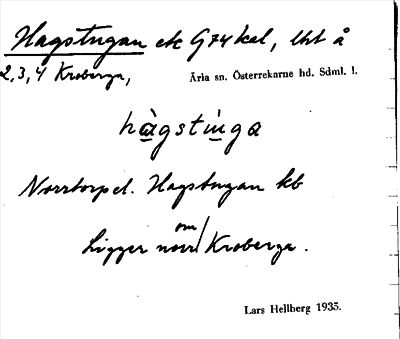 Hagstugan ek G74 kal, Uht å
2, 3, 4 Kroberga,
Ärla sn. Österrekarne hd. Sdml. l.
hàgstu̲ga
Norrtorp el. Hagstugan kb
Ligger norr om Kroberga.
Lars Hellberg 1935.